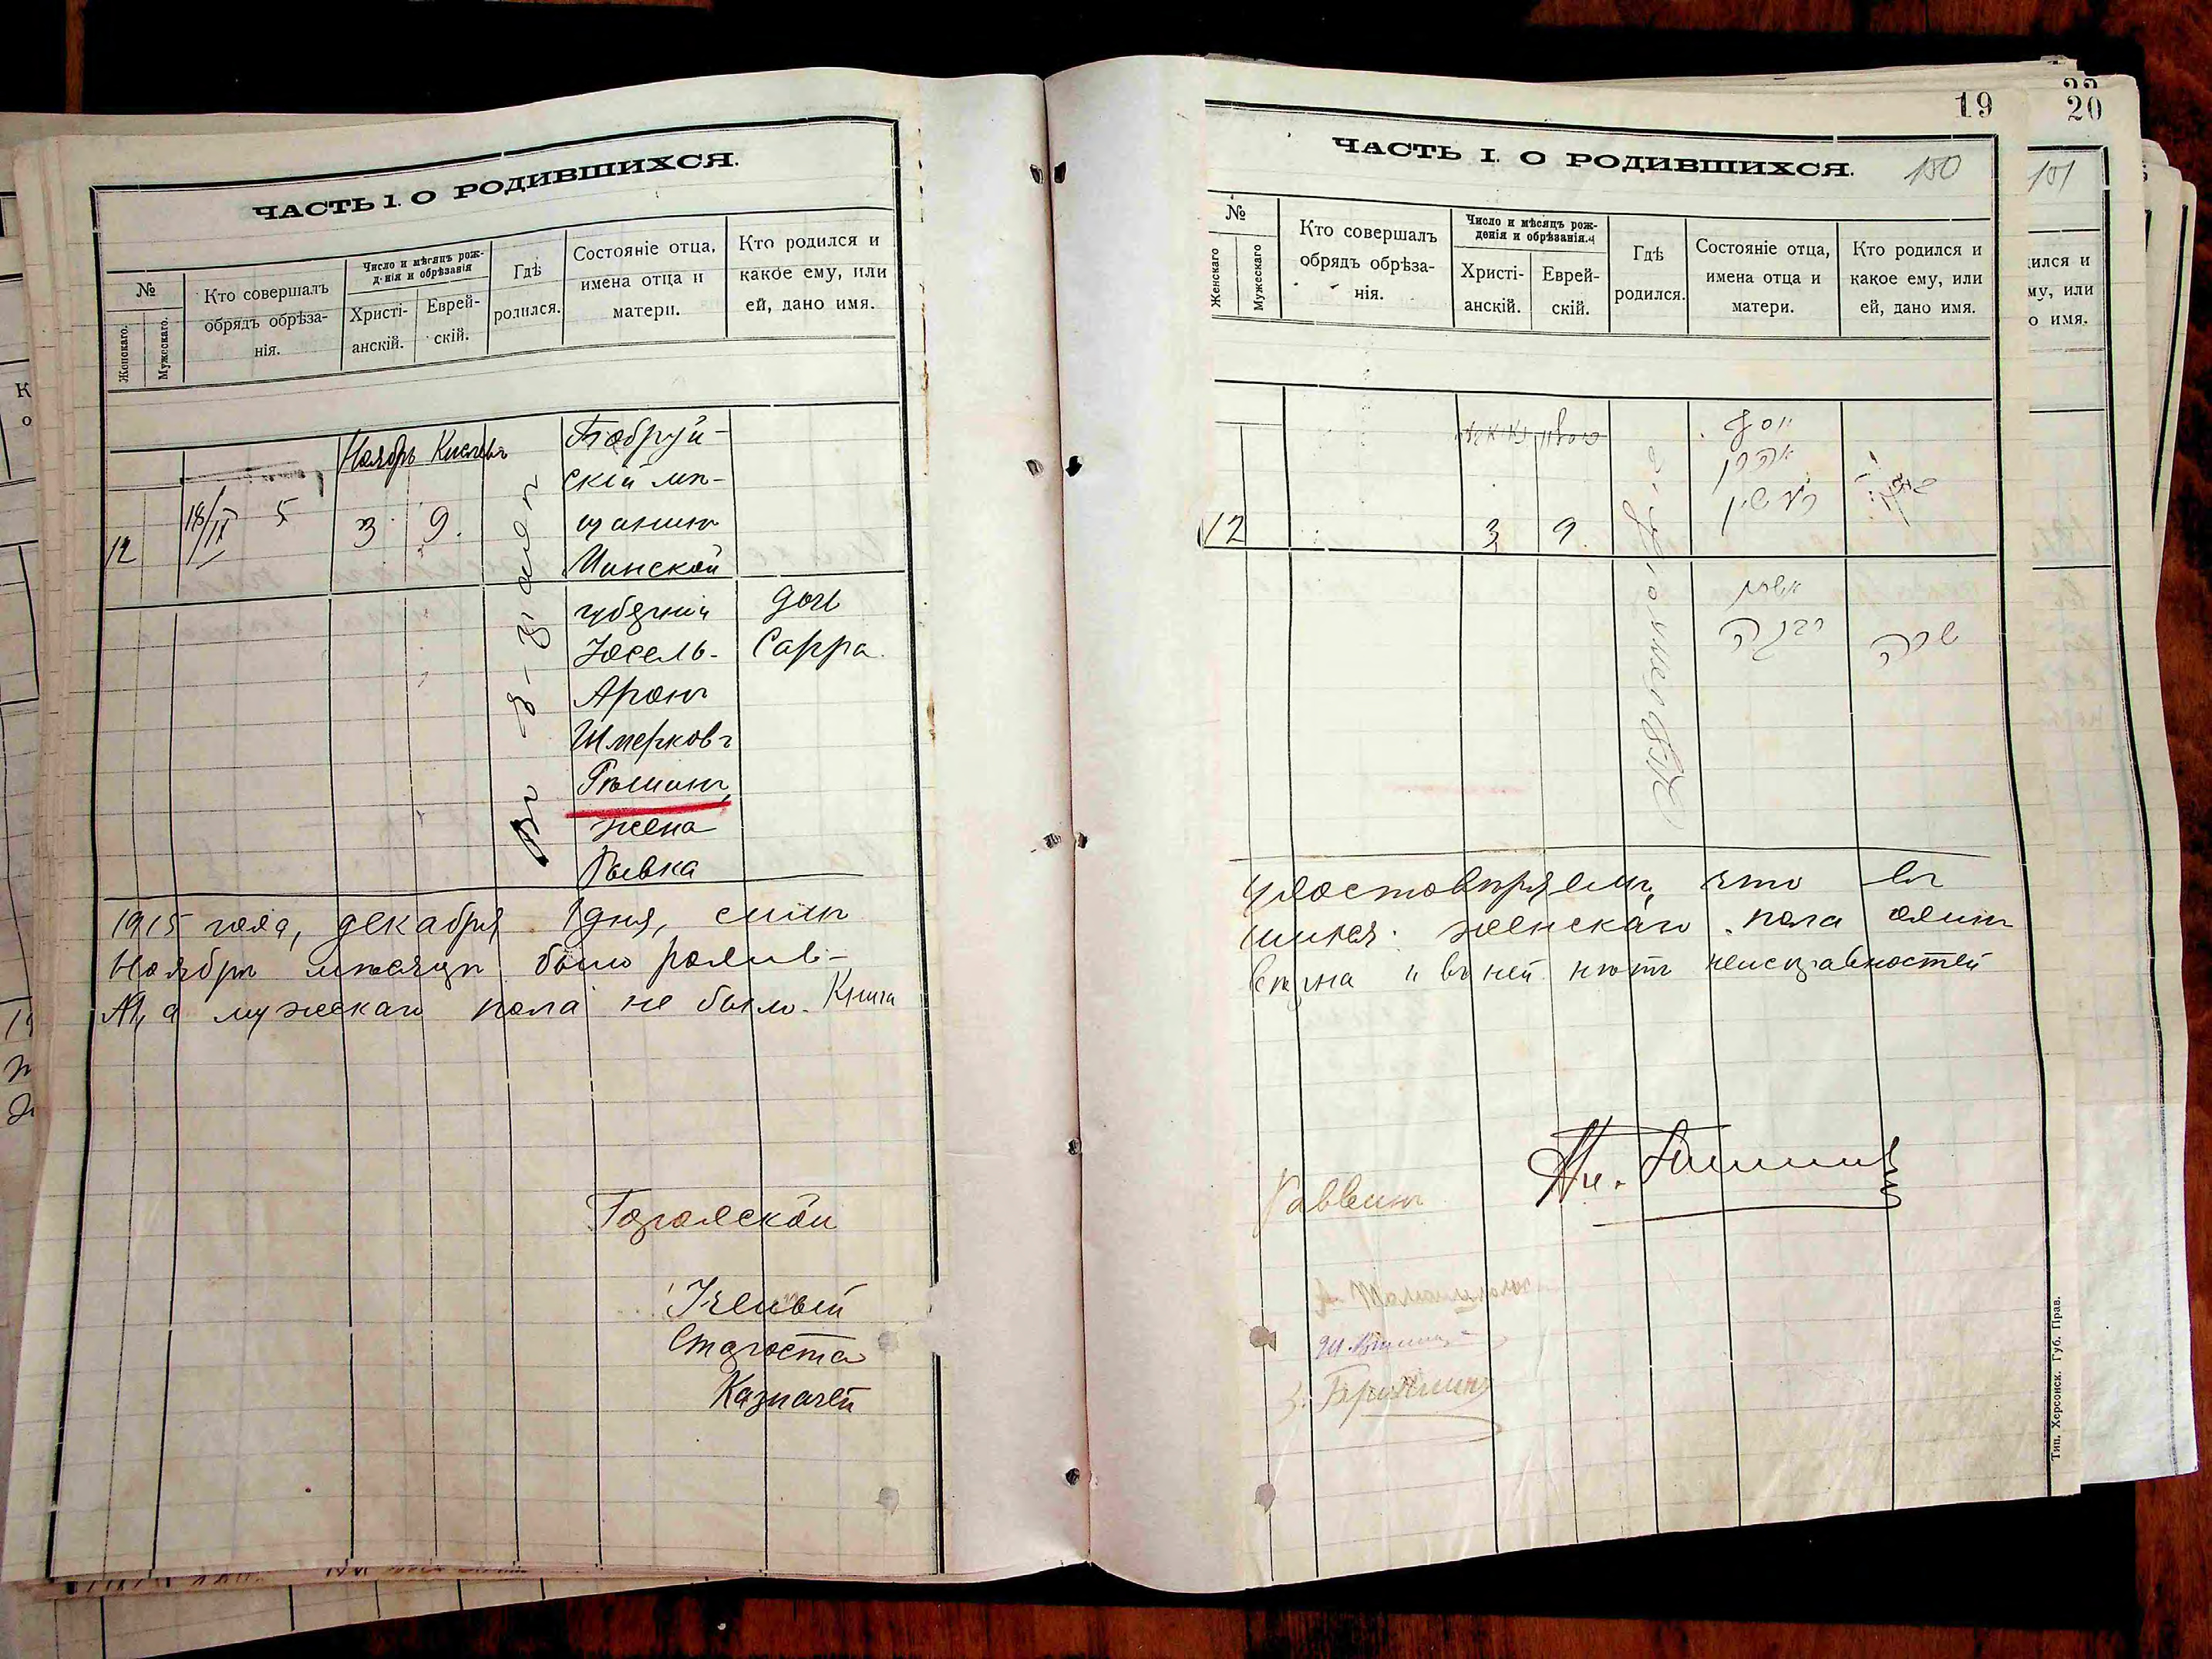 ЧАСТЬ 1. О РОДИВШИХСЯ.
№
Женскаго.
Мужескаго.
Кто совершалъ
обрядъ обрѣза-
нія.
Число и мѣсяцъ рож-
денія и обрѣзанія
Христі-
анскій.
Еврей-
скій.
Гдѣ
родился.
Состояніе отца,
имена отца и
матери.
Кто родился и
какое ему, или
ей, дано имя.
Ноябрь Кислевъ
12
18/IX 5
3
9.
Бобруй-
скій мѣ-
щанинъ
Минской
губерніи
Іосель-
Аронъ
Шмерковъ
Рѣшинъ,
жена
Рывка
дочь
Сарра.
1915 года, декабря 1 дня, симъ
Ноябрѣ мѣсяцѣ было родив-
№, а мужескаго пола не было. Книга
Городской
Ученый
Староста
Казначей
19
20
ЧАСТЬ I. О РОДИВШИХСЯ.
150
151
№
Женскаго
Мужескаго
Кто совершалъ
обрядъ обрѣза-
нія.
Число и мѣсяцъ рож-
денія и обрѣзанія.
Христі-
анскій.
Еврей-
скій.
Гдѣ
родился.
Состояніе отца,
имена отца и
матери.
Кто родился и
какое ему, или
ей, дано имя.
ился и
му, или
о имя.
12
3
9.
יוסף
אהרן
אשתו
רבקה
שרה
удостовѣряемъ, что въ
шихся женскаго пола одинъ
вѣрна и въ ней нѣтъ неисправностей
Раввинъ
Тип. Херсонск. Губ. Прав.